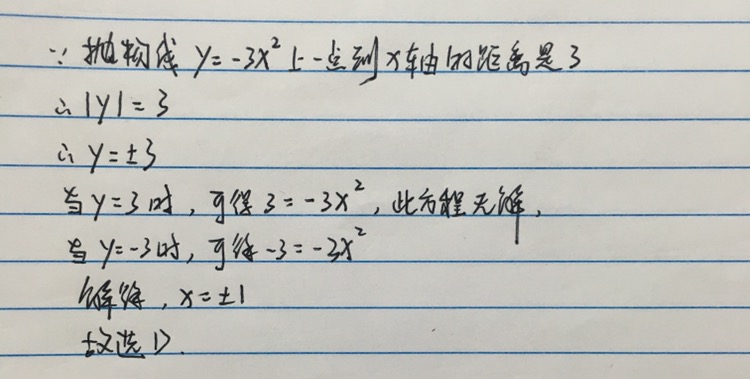 ∵ 抛物线 y=-3x² 上一点到 x轴的距离是3
∴ |y|=3
∴ y=±3
当 y=3时，可得 3=-3x²，此方程无解，
当 y=-3时，可得 -3=-3x²
解得，x=±1
故选D.